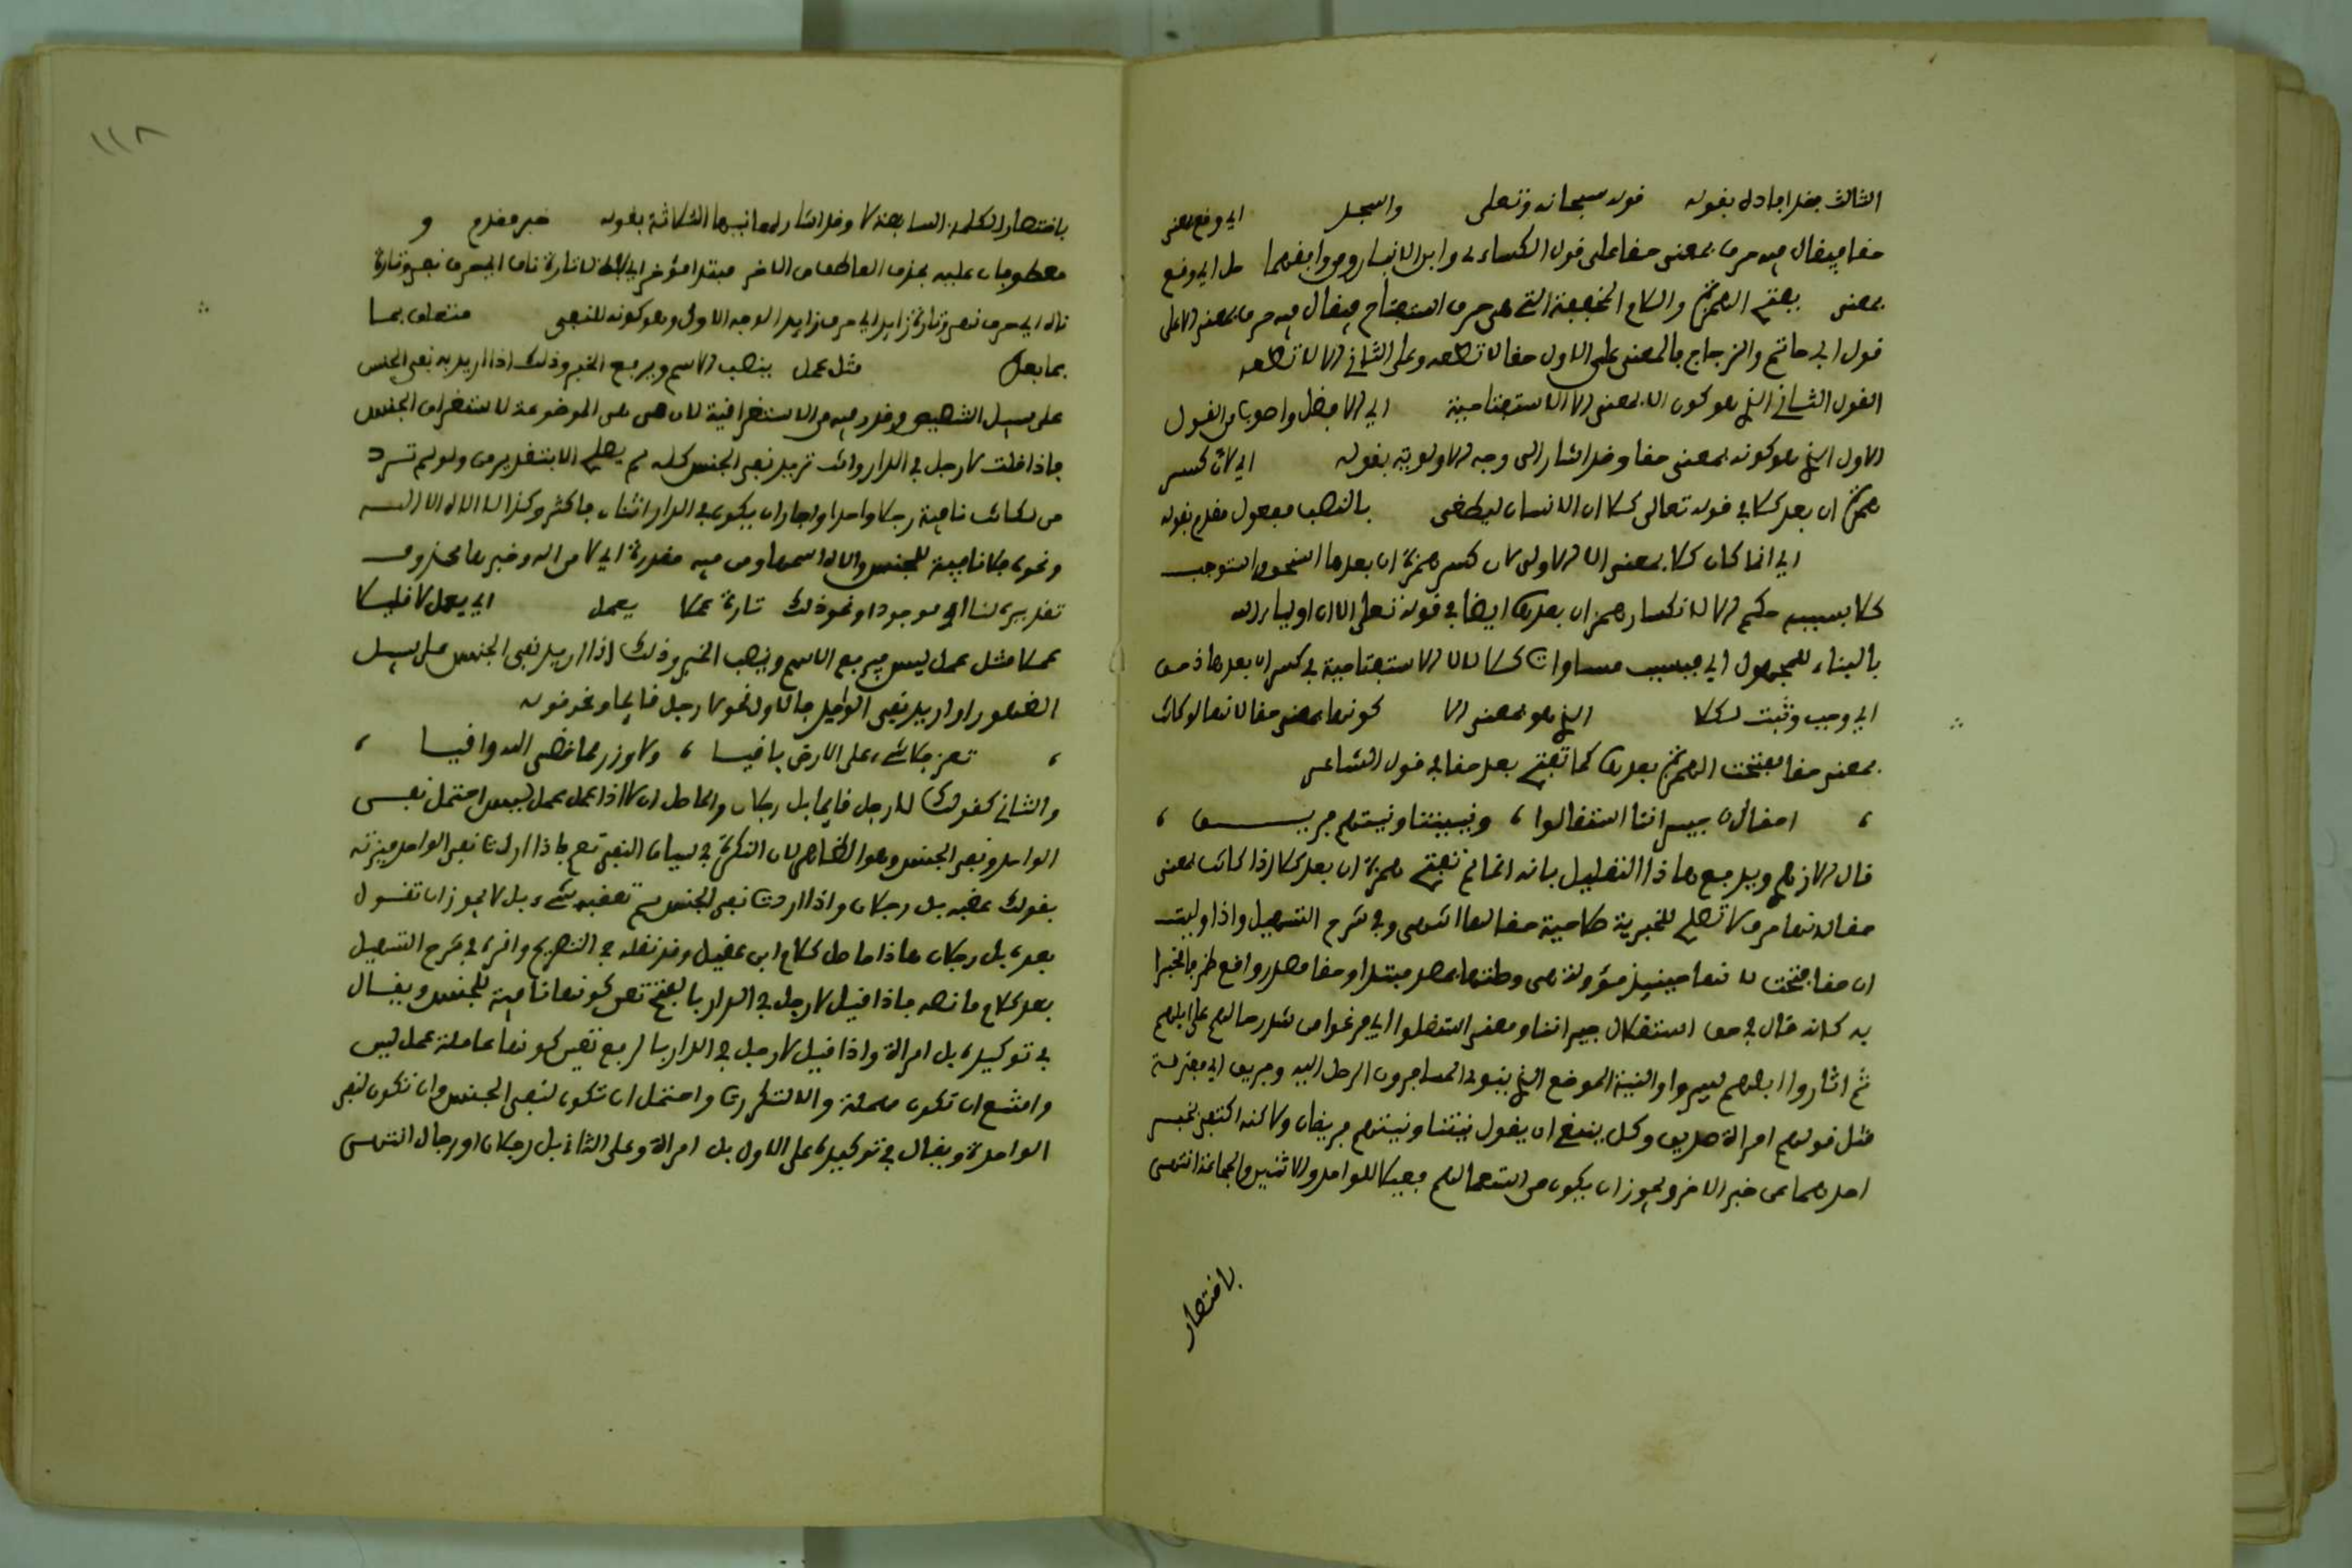 الثالث فقد افاده بقوله قوله سبحانه وتعلى واسجد اي وقع بمعنى
حقا فيقال فيه حرف بمعنى حقا على قول الكساءي وابن الانباري ومن وافقهما اي وقع
بمعنى بفتح الهمزة واللام الخفيفة التي هي حرف استفتاح فيقال فيه حرف بمعنى الا على
قول ابي حاتم والزجاج فالمعنى على الاول حقا لا تطعه وعلى الثاني الا لا تطعه
القول الثاني الذي هو كون الا بمعنى الا الاستفتاحية اي الافضل واصوب من القول
الاول الذي هو كونه بمعنى حقا وقد اشار الى وجه الاولوية بقوله اي لان كسر
همزة ان بعد كلا في قوله تعالى كلا ان الانسان ليطغى بالنصب مفعول مقدم بقوله
اي انما كان كلا بمعنى الا الاولى لان كسر همزة ان بعدها استوجب
كلا بسببه حكم الا لانكسار همز ان بعدها ايضا في قوله تعلى الا ان اولياء الله
بالبناء للمجهول اي فبسبب مساوات كلا لالا الاستفتاحية في كسر ان بعدها
اي وجب وثبت لكلا الذي هو بمعنى الا كونها بمعنى حقا لانها لو كانت
بمعنى حقا لفتحت الهمزة بعدها كما تفتح بعد حقا في قول الشاعر
، احقا ان جيرانتا استقلوا ، ونيتنا ونيتهم فريــــق ،
قال الازهري ويدفع هاذا التعليل بانه انما لم تفتح همزة ان بعد كلا اذا كانت بمعنى
حقا لانها حرف لا تصلح للخبرية صلاحية حقا لها انتهى وفي شرح التسهيل واذا وليت
ان حقا فتحت لانها حينيذ مؤولة هي وصلتها بمصدر مبتدا وحقا مصدر واقع ظرفا مخبرا
به كانه قال في حق استقلال جيراننا ومعنى استقلوا اي من شد رحالهم على ابلهم
ثم اثاروا ابلهم ليسيروا والنية الموضع الذي ينوي المسافرون الرحل اليه وفريق اي مفترقة
مثل قولهم امراة صديق وكل ينبغي ان يقول نيتنا ونيتهم فريقان ولاكنه اكتفى بخبر
احدهما عن خبر الاخر ويجوز ان يكون من استعمالهم فعيلا للواحد والاثنين والجماعة انتهى
باختصار
١١٨
باختصار الكلمة السابعة لا وقد اشار لمعانيها الثلاثة بقوله خبر مقدم و
معطوفان عليه بحذف العاطف من الاخر مبتدا مؤخر اي لفظ لا تارة ناف اي حرف نفي وتارة
ناه اي حرف نهي وتارة زايد اي حرف زايد الوجه الاول وهو كونه للنفي متعلق بما
بما بعد مثل عمل ينصب الاسم ويرفع الخبر وذلك اذا اريد به نفي الجنس
على سبيل التنصيص وقدر فيه من الاستغراقية لان هي الموضوعة لاستغراق الجنس
فاذا قلت لا رجل في الدار وانت تريد نفي الجنس كله لم يصلح الا بتقدير من ولو لم ترد
من لكانت نافية رجلا واحدا ولجاز ان يكون في الدار اثنان فاكثر وكذا لا الاه الا الله
ونحوه فلا نافية للجنس والاه اسمها ومن فيه مقدرة اي لا من اله وخبرها محذوف
تقديره لنا اي موجود او نحو ذلك تارة عملا يعمل اي يعمل لا قليلا
عملا مثل عمل ليس فيرفع الاسم وينصب الخبر وذلك اذا اريد نفي الجنس على سبيل
الظهور او اريد نفي الواحد فالاول نحو لا رجل قايما ونحو قوله
، تعز فلا شيء على الارض باقيا ، ولا وزر مما قضى الله واقيا ،
والثاني كقولك لا رجل قايما بل رجلان والحاصل ان لا اذا عمل عمل ليس احتمل نفي
الواحد ونفي الجنس وهو الظاهر لان النكرة في سياق النفي تعم فاذا اردت نفي الواحد ميزته
بقولك عقبه بل رجلان واذا اردت نفي الجنس لم تعقبه بشيء بل لا يجوز ان تقول
بعده بل رجلان هاذا حاصل كلام ابن عقيل وقد نقله في التصريح واقره في شرح التسهيل
بعد كلام ما نصه فاذا قيل لا رجل في الدار بالفتح تعين كونها نافية للجنس ويقال
في توكيده بل امراة واذا قيل لا رجل في الدار بالرفع تعين كونها عاملة عمل ليس
وامتنع ان تكون مهملة والا لتكررت واحتمل ان تكون لنفي الجنس وان تكون لنفي
الواحدة ويقال في توكيده على الاول بل امراة وعلى الثاني بل رجلان او رجال انتهى